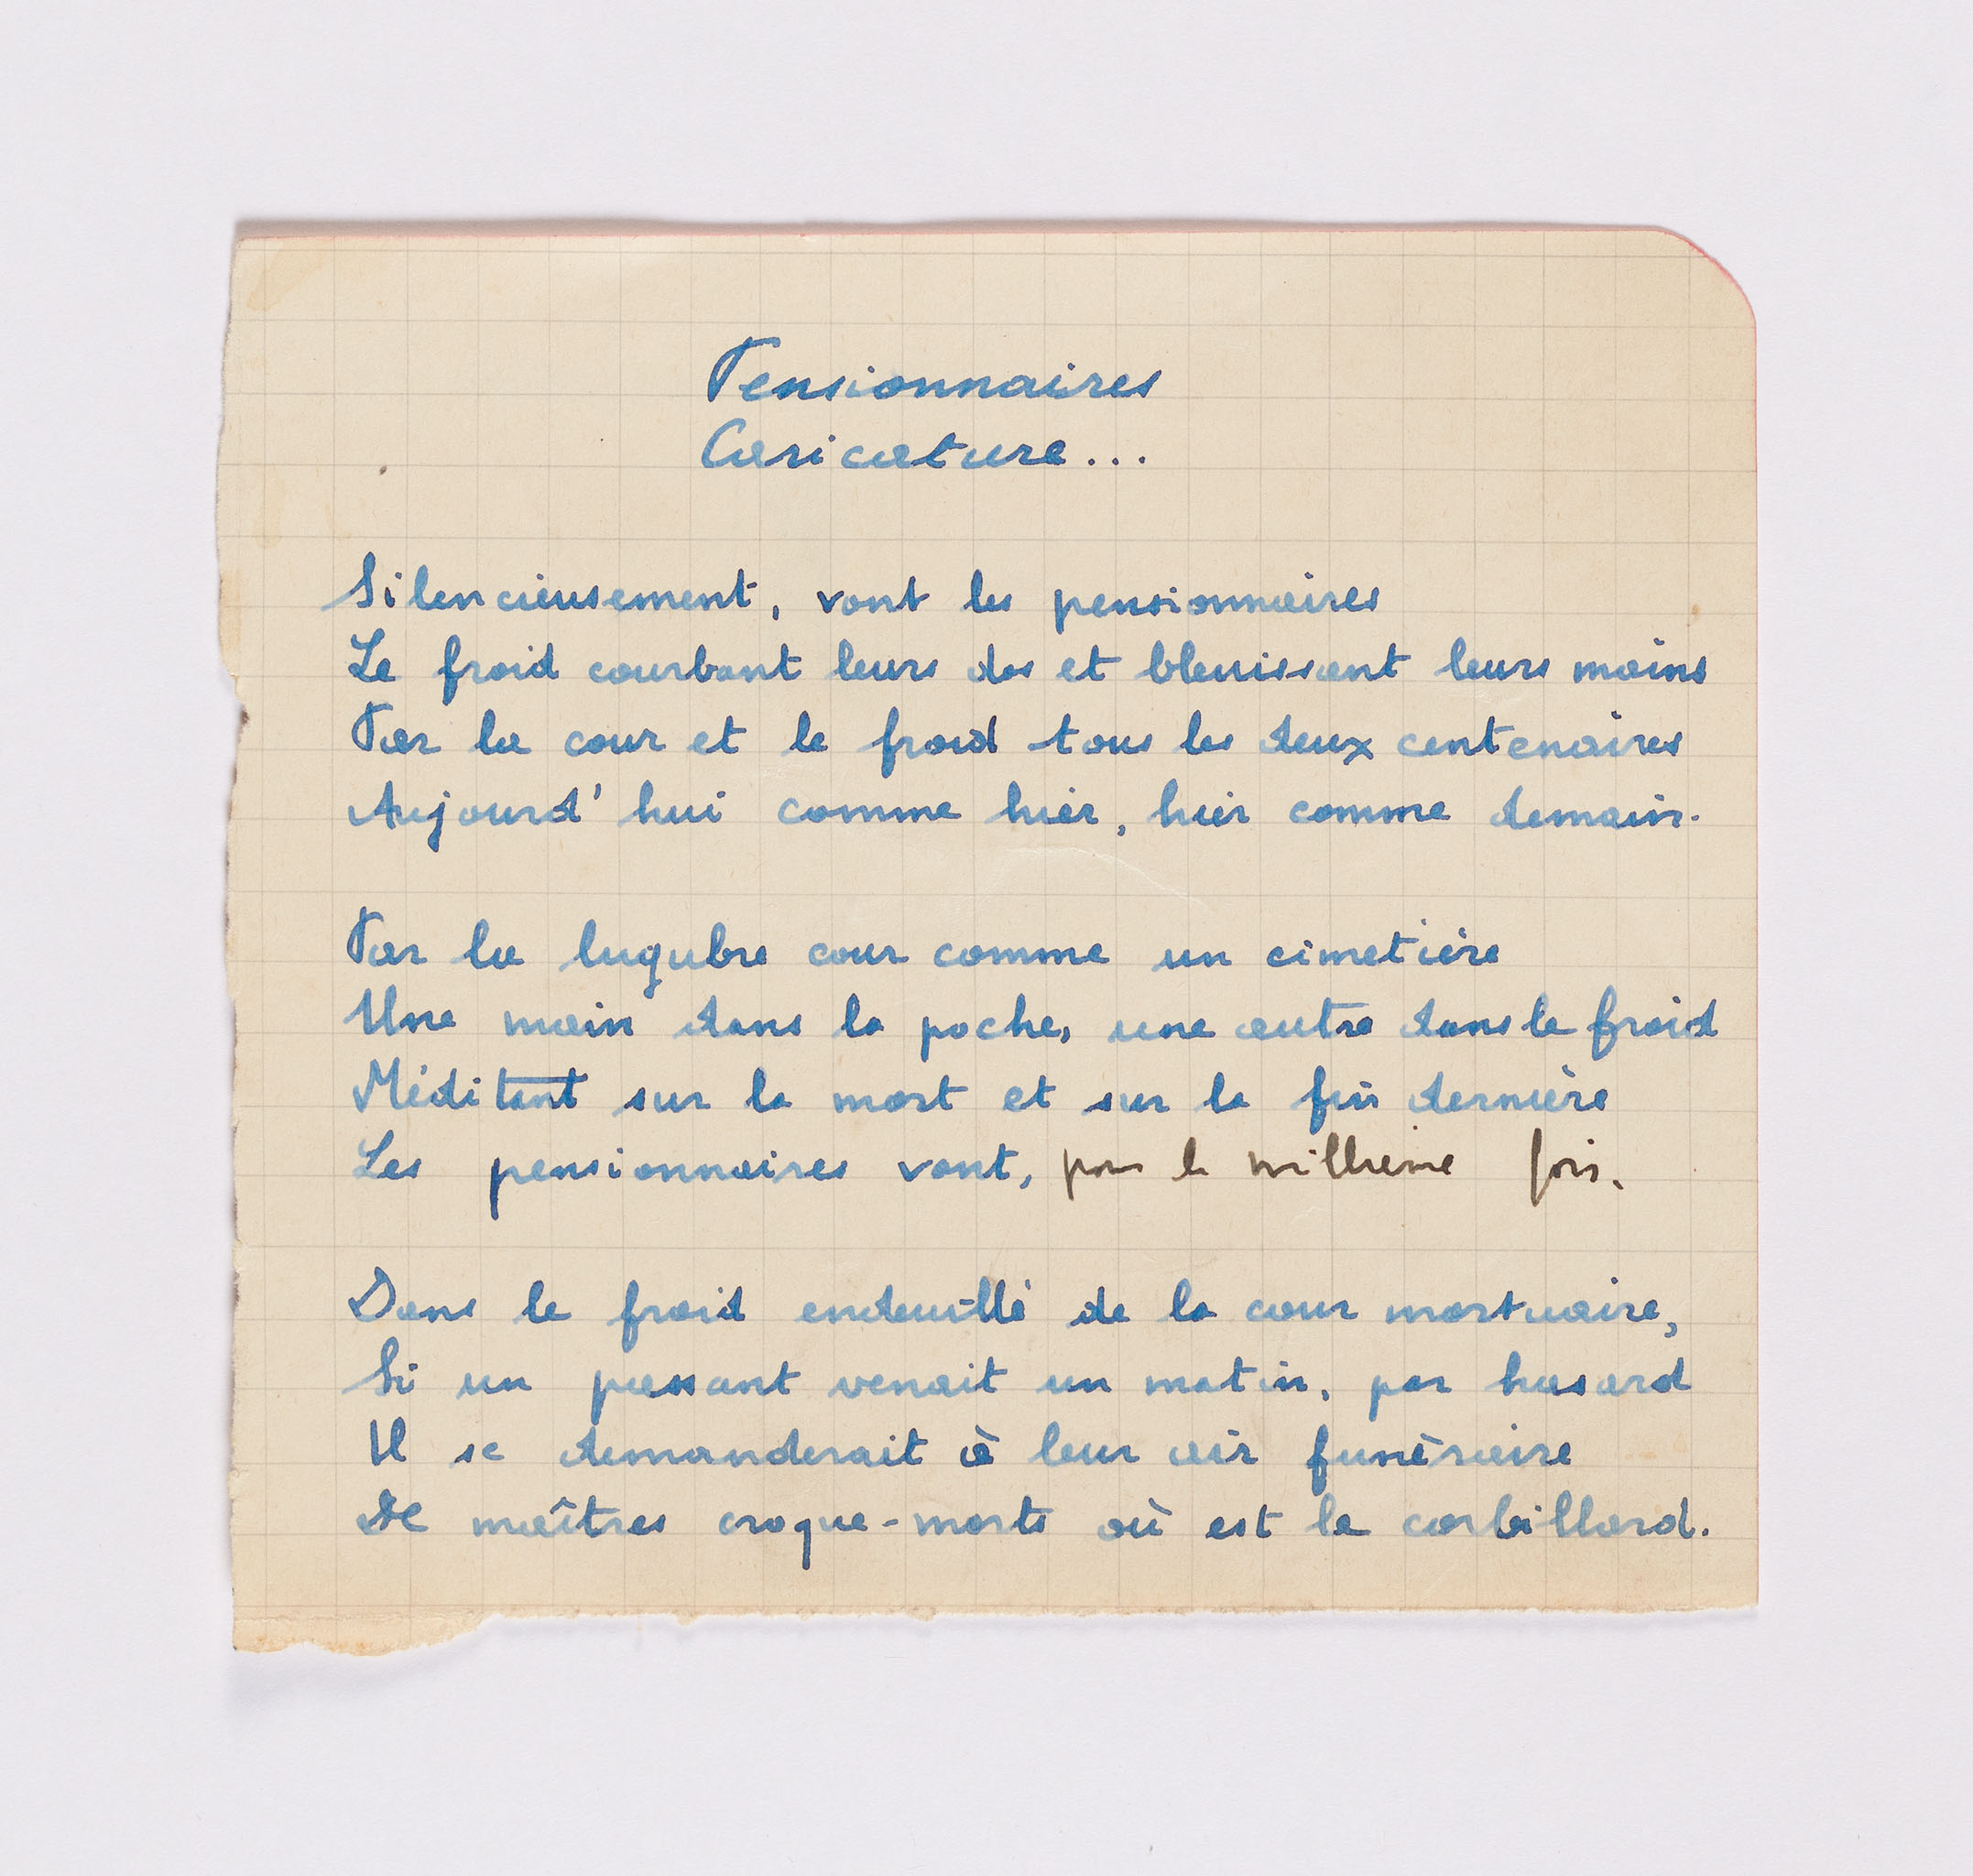 Pensionnaires
Caricature...
Silencieusement, vont les pensionnaires
Le froid courbant leurs dos et bleuissant leurs mains
Par la cour et le froid tous les deux centenaires
Aujourd'hui comme hier, hier comme demain.
Par la lugubre cour comme un cimetière
Une main dans la poche, une autre dans le froid
Méditant sur la mort et sur la fin dernière
Les pensionnaires vont, pour la millième fois.
Dans le froid endeuillé de la cour mortuaire,
Si un passant venait un matin, par hasard
Il se demanderait à leur air funéraire
De maîtres croque-morts où est le corbillard.